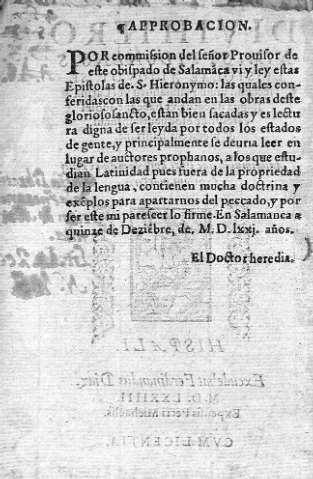 ¶APPROBACION.
POR commission del señor Prouisor de
este obispado de Salamãca vi y ley estas
Epistolas de. S. Hieronymo: las quales con-
feridas con las que andan en las obras deste
glorioso sancto, están bien sacadas y es lectu
ra digna de ser leyda por todos los estados
de gente, y principalmente se deuria leer en
lugar de auctores prophanos, a los que estu-
dian Latinidad pues fuera de la propriedad
de la lengua, contienen mucha doctrina y
exẽplos para apartarnos del peccado, y por
ser este mi parescer lo firme. En Salamanca a
quinze de Deziẽbre, de. M. D. lxxj. años.
El Doctor heredia.
HISPALI.
Excudebat Ferdinandus Diaz
M. D. LXXIIII.
Expensis Petri Michaelis
CVM LICENTIA.